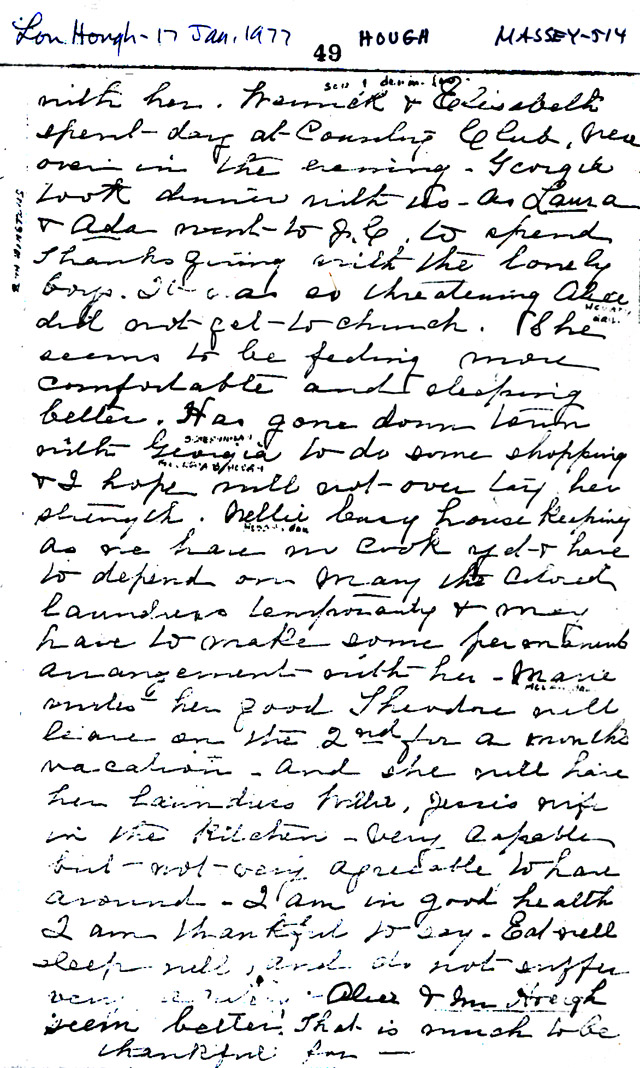 Lon Hough - 17 Jan. 1977 HOUGH MASSEY-514
49
with her. Warnick & Elisabeth
spent day at Country Club, were
over in the evening - Georgia
took dinner with us - as Laura
& Ada went to J.C. to spend
Thanksgiving with the lonely
boys. It was so threatening Alice
did not get to church. She
seems to be feeling more
comfortable and sleeping
better. Has gone down town
with Georgia to do some shopping
& I hope will not over tax her
strength. Nellie busy house keeping
as we have no cook yet & have
to depend on Mary the colored
laundress temporarily & may
have to make some permanent
arrangement with her - Marie
writes her good Theodore will
leave on the 2nd for a month's
vacation - and she will have
her laundress Willie, Jessis wife
in the kitchen - very capable
but not very agreeable to have
around - I am in good health
I am thankful to say - Eat well
sleep well, and do not suffer
very - Alice & Mr Hough
seem better. That is much to be
thankful for -